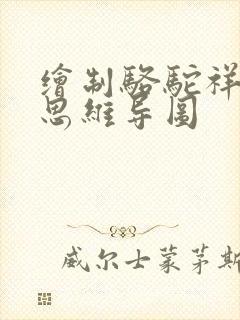 繪制駱駝祥
思維导圖
威尔士蒙茅斯